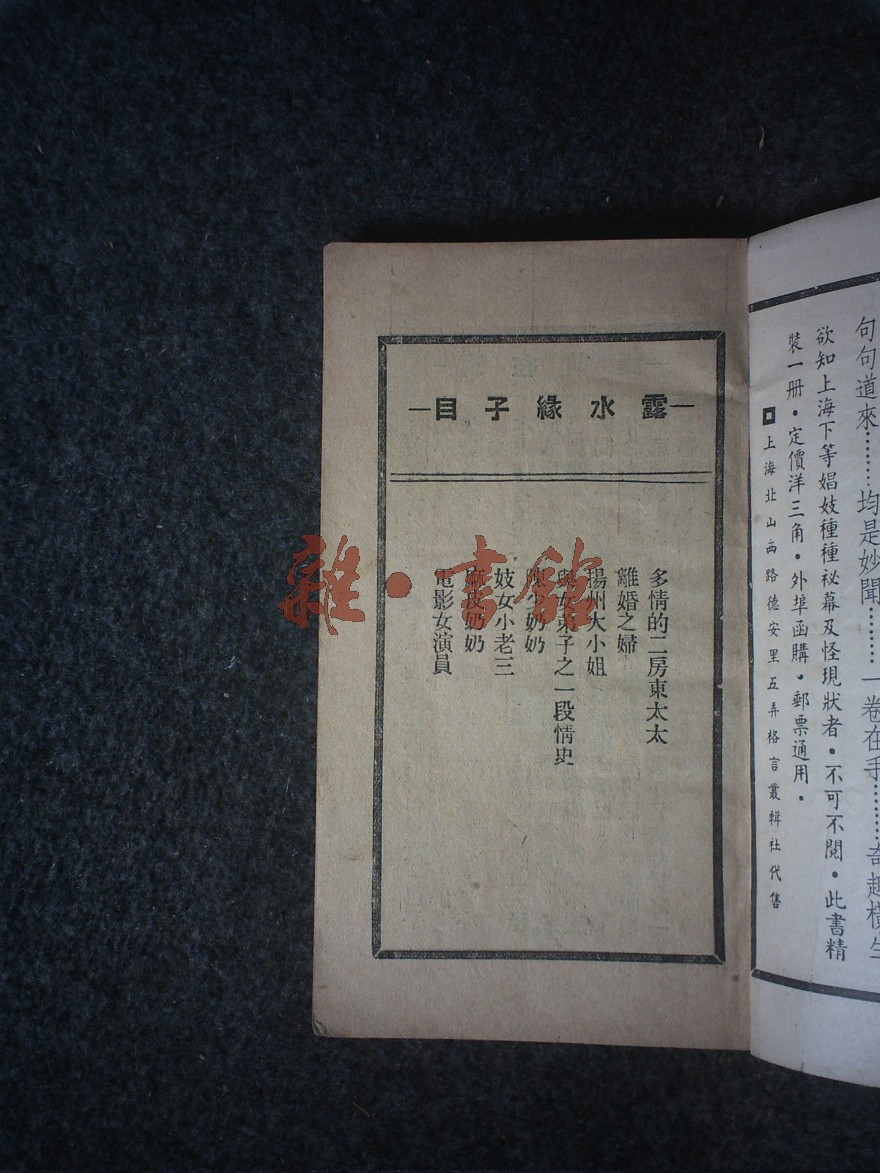 句句道來………均是妙聞………一卷在手………奇趣橫生
欲知上海下等娼妓種種祕幕及怪現狀者・不可不閱・此書精
裝一册・定價洋三角・外埠函購・郵票通用・
上海北山西路德安里五弄格言叢輯社代售
露水緣子目
多情的二房東太太
離婚之婦
揚州大小姐
與女弟子之一段情史
陳少奶奶
妓女小老三
麻皮奶奶
電影女演員
雜・書館